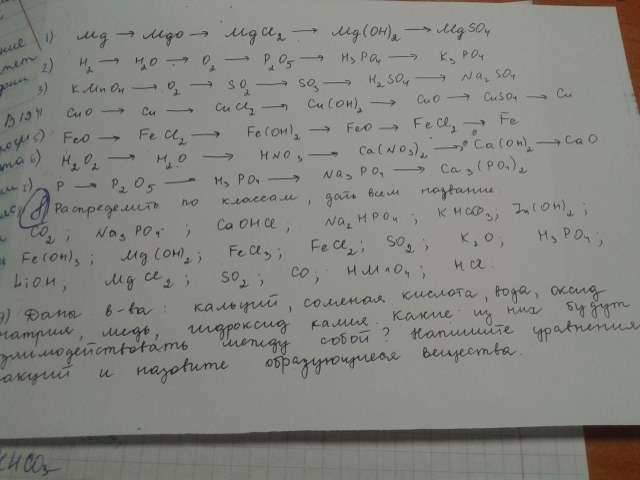 1) Mg → MgO → MgCl2 → Mg(OH)2 → MgSO4
2) H2 → H2O → O2 → P2O5 → H3PO4 → K3PO4
3) KMnO4 → O2 → SO2 → SO3 → H2SO4 → Na2SO4
CuO → Cu → CuCl2 → Cu(OH)2 → CuO → CuSO4 → Cu
5) FeO → FeCl2 → Fe(OH)2 → FeO → FeCl2 → Fe
6) H2O2 → H2O → HNO3 → Ca(NO3)2 → Ca(OH)2 → CaO
P → P2O5 → H3PO4 → Na3PO4 → Ca3(PO4)2
8) Распределить по классам, дать всем название:
CO2; Na3PO4; CaOHCl; Na2HPO4; KHCO3; Zn(OH)2;
Fe(OH)3; Mg(OH)2; FeCl3; FeCl2; SO2; K2O; H3PO4;
LiOH, MgCl2; SO2; CO; HMnO4; HCl.
9) Даны в-ва: кальций, соменая кислота, вода, оксид
натрия, медь, гидроксид калия. Какие из них будут
взаимодействовать между собой? Напишите уравнения
акций и назовите образующиеся вещества.
KHCO3